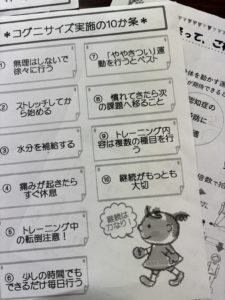 ＊コグニサイズ実施の10か条＊
① 無理はしないで
徐々に行う
② ストレッチしてか
ら始める
③ 水分を補給する
④ 痛みが起きたら
すぐ休息
⑤ トレーニング中
の転倒注意！
⑥ 少しの時間でも
できるだけ毎日行う
⑦ 「ややきつい」運
動を行うとベスト
⑧ 慣れてきたら次
の課題へ移ること
⑨ トレーニング内
容は複数の種目を行
う
⑩ 継続がもっとも
大切
継続は
力なり
って、こ
体を動かす
認知症の